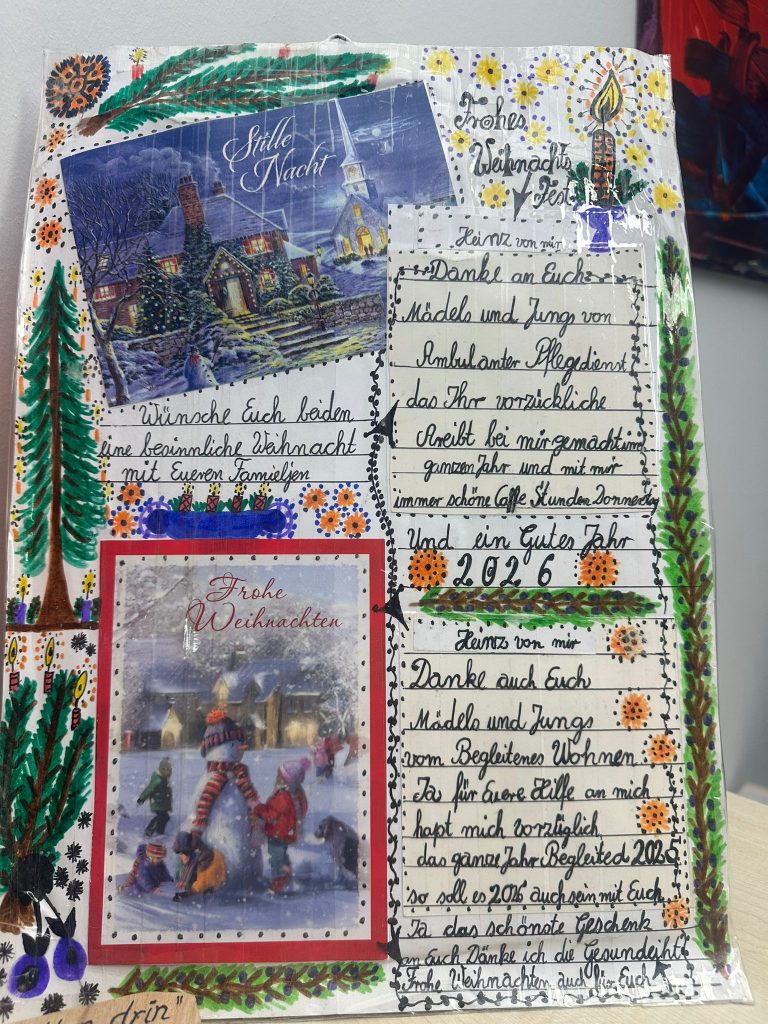 Stille
Nacht
Frohes
Weihnachts
Fest
Heinz von mir
Danke an Euch
Mädels und Jungs von
Ambulanter Pflegedienst
das Ihr vorzückliche
Areibt bei mir gemacht im
ganzen Jahr und mit mir
immer schöne Caffe Stunden Donnerstag
Wünsche Euch beiden
eine besinnliche Weihnacht
mit Eueren Familjen
Und ein Gutes Jahr
2026
Frohe
Weihnachten
Heinz von mir
Danke auch Euch
Mädels und Jungs
vom Begleitenes Wohnen
Ja für Euere Hilfe an mich
hapt mich vorzüglich
das ganze Jahr Begleited 2025
so soll es 2026 auch sein mit Euch
Ja das schönste Geschenk
an Euch Dänke ich die Gesundeiht
Frohe Weihnachten auch für Euch
drin"